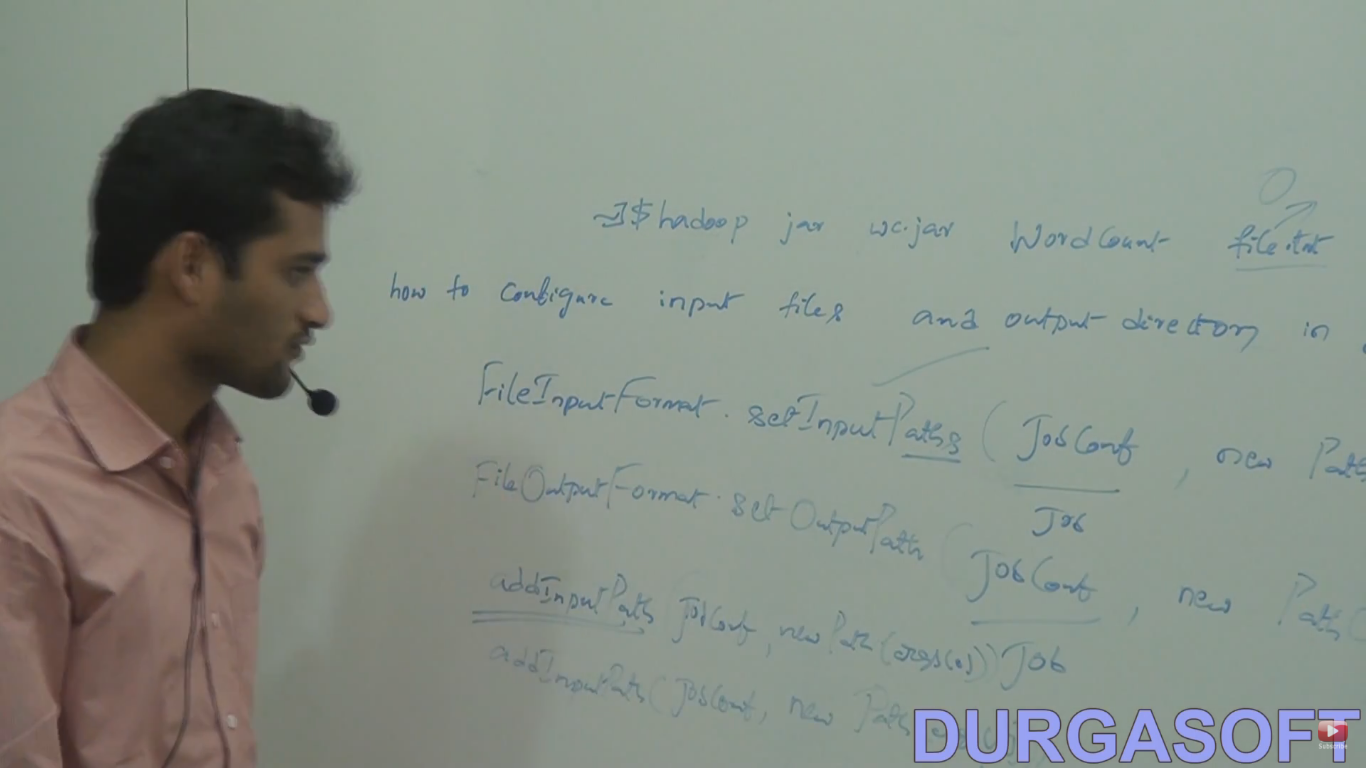 ~]$hadoop jar wc.jar WordCount file.txt
how to configure input files and output directory in
FileInputFormat.setInputPaths (JobConf, new Path
Job
FileOutputFormat.setOutputPath (JobConf, new Path(
addInputPath JobConf, new Path(args(0)) Job
addInputPath(JobConf, new Path
DURGASOFT
Subscribe